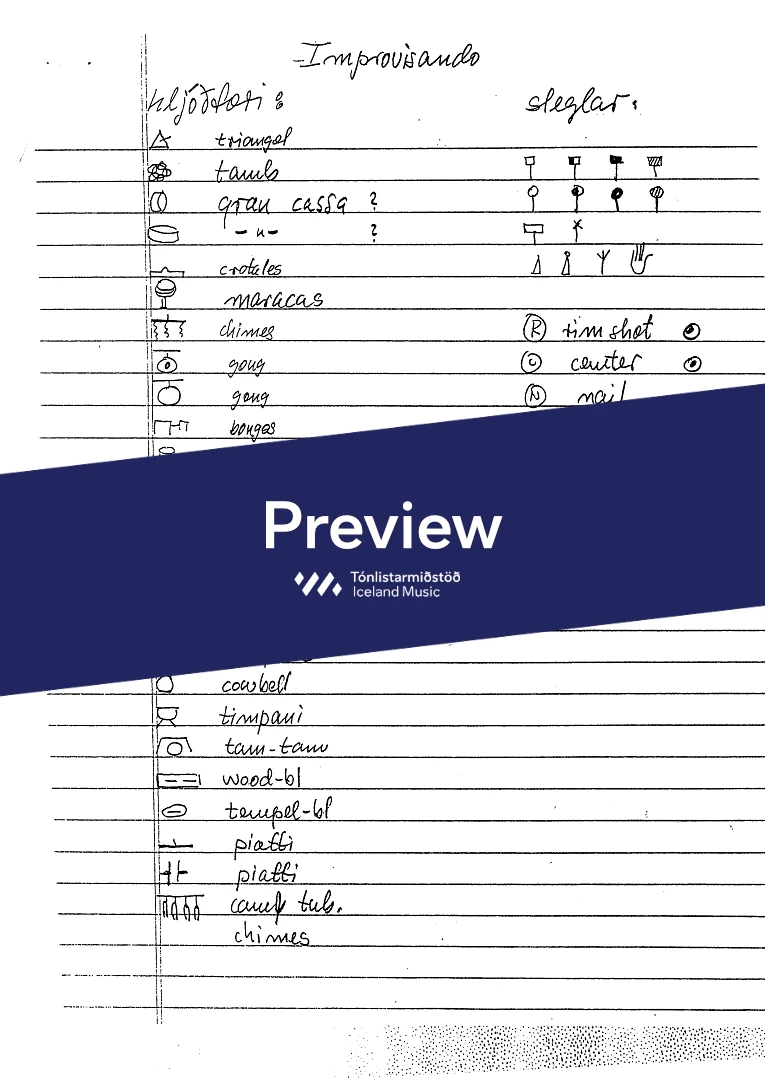 Improvisando
hljóðfæri: sleglar:
triangel
tamb
gran cassa ?
-"- ?
crotales
maracas
chimes R rim shot
gong C center
gong N nail
bongos
Preview
Tónlistarmiðstöð
Iceland Music
cowbell
timpani
tam-tam
wood-bl
tempel-bl
piatti
piatti
camp tub.
chimes